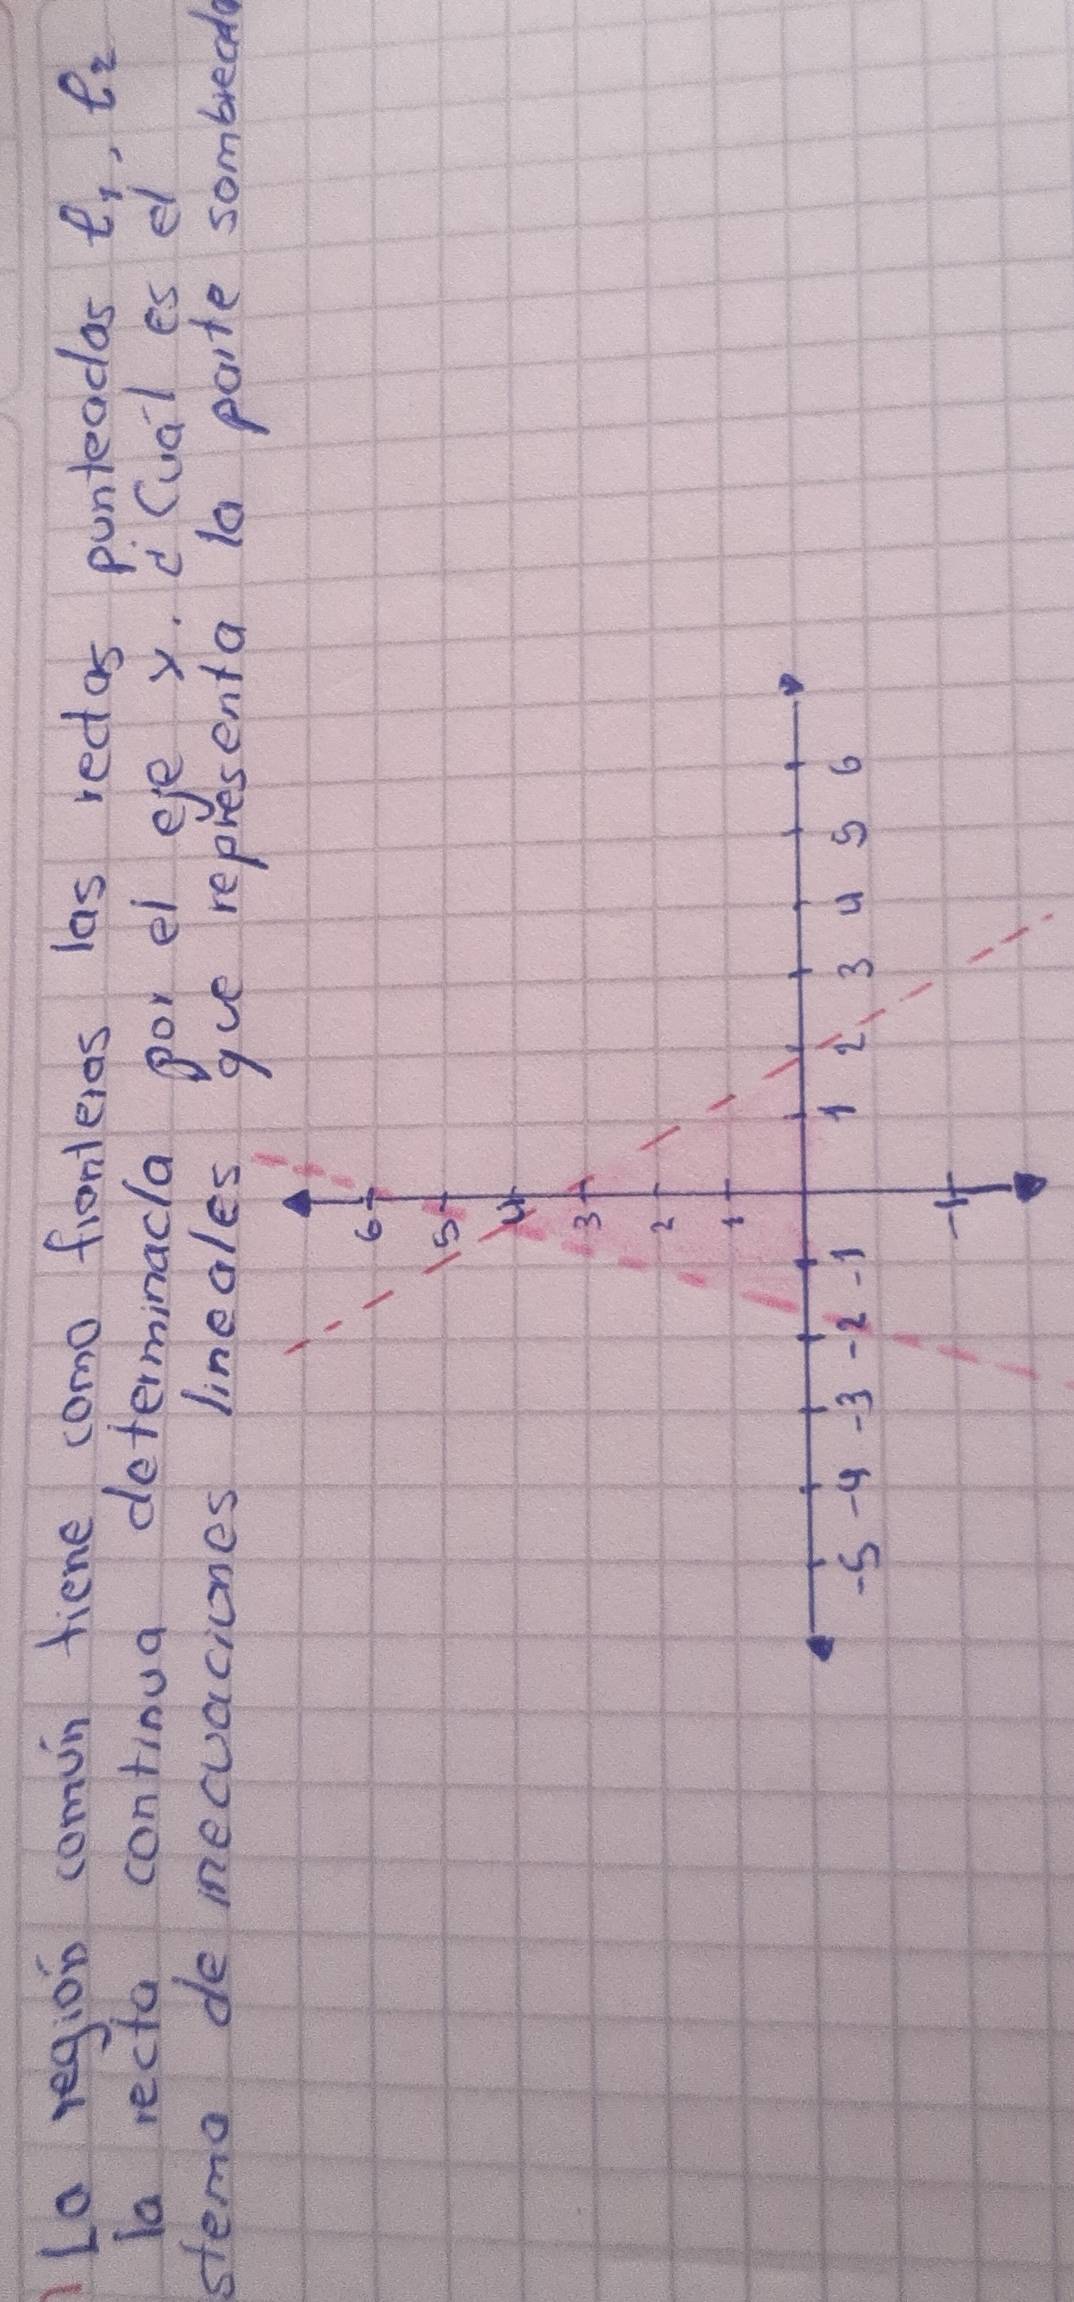 La región común tiene como fronteras las rectas punteadas l₁, l₂
la recta continua determinada por el eje x. ¿Cuál es el
stema de inecuaciones lineales que representa la parte sombreada
6
5
4
3
2
1
-5 -4 -3 -2 -1 1 2 3 4 5 6
-1